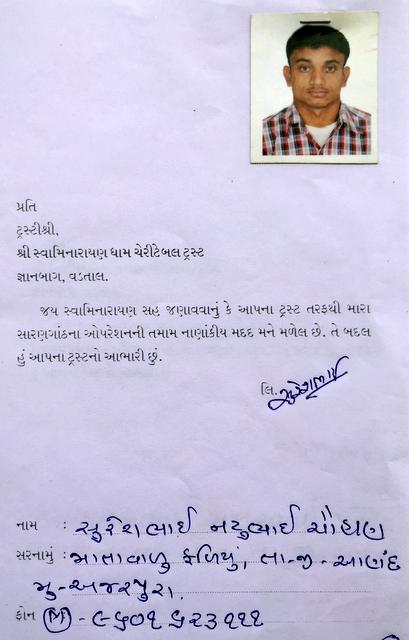 પ્રતિ
ટ્રસ્ટીશ્રી,
શ્રી સ્વામિનારાયણ ધામ ચેરીટેબલ ટ્રસ્ટ
જ્ઞાનબાગ, વડતાલ.
જય સ્વામિનારાયણ સહ જણાવવાનું કે આપના ટ્રસ્ટ તરફથી મારા
સારણગાંઠના ઓપરેશનની તમામ નાણાંકીય મદદ મને મળેલ છે. તે બદલ
હું આપના ટ્રસ્ટનો આભારી છું.
લિ. સુરેશભાઈ
નામ : સુરેશભાઈ નટુભાઈ ચૌહાણ
સરનામું : માતાવાળુ ફળિયું, તા-જી-આણંદ
મુ-અજરપુરા.
ફોન (M) - ૯૬૦૧૬૨૩૧૧૧